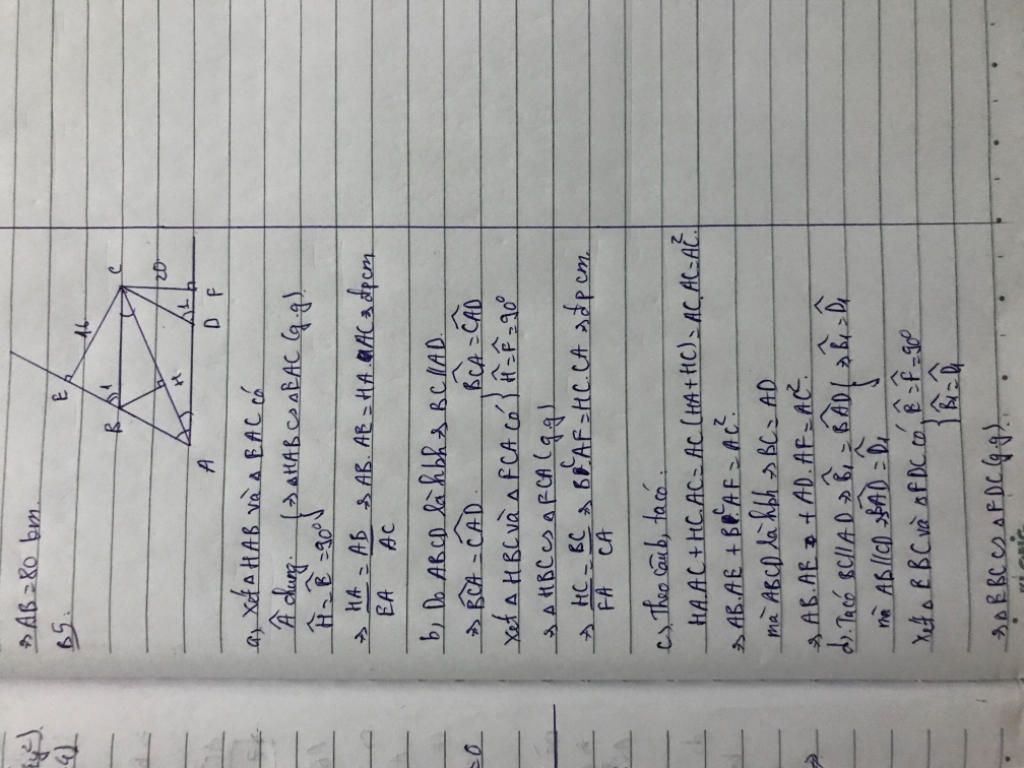 ⇒ AB = 80 bm.
B5:
E
16
B
1
C
H
20
A
D
F
a, Xét △HAB và △EAC có
Â chung.
Ĥ = Ê = 90⁰ } ⇒ △HAB ∽ △EAC (g.g)
⇒ HA/EA = AB/AC ⇒ AB.AE = HA.AC ⇒ đpcm
b, Do ABCD là hbh ⇒ BC//AD
⇒ BCA = CAD.
Xét △HBC và △FCA có { BCA = CAD
Ĥ = F̂ = 90⁰
⇒ △HBC ∽ △FCA (g.g)
⇒ HC/FA = BC/CA ⇒ BC.AF = HC.CA ⇒ đpcm.
c, Theo câu a,b, ta có.
HA.AC + HC.AC = AC(HA+HC) = AC.AC = AC².
⇒ AB.AE + BC.AF = AC².
mà ABCD là hbh ⇒ BC = AD
⇒ AB.AE + AD.AF = AC².
d. Ta có BC//AD ⇒ B̂₁ = BAD
mà AB//CD ⇒ BAD = D̂₁ } ⇒ B̂₁ = D̂₁
Xét △EBC và △FDC có { Ê = F̂ = 90⁰
B̂₁ = D̂₁
⇒ △EBC ∽ △FDC (g.g).
= 0
⇒